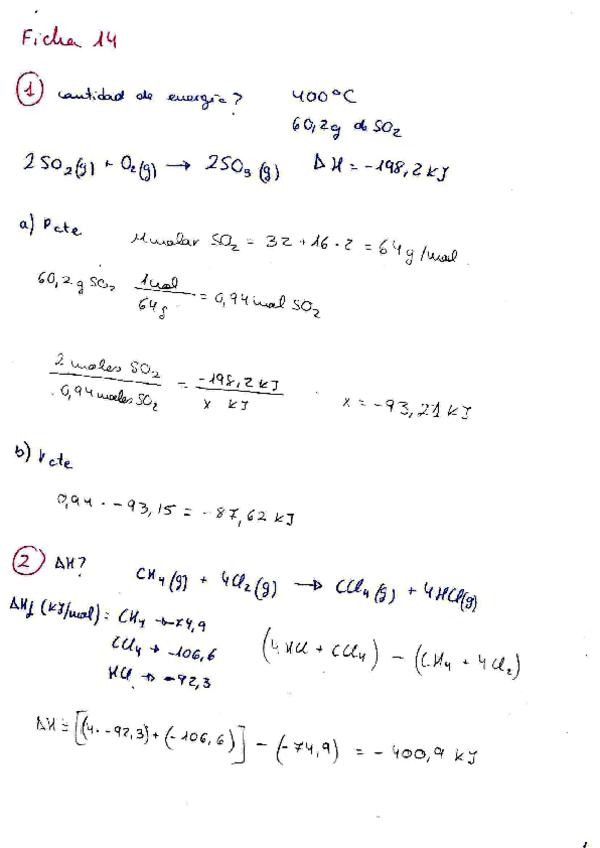 Ficha 14
① cantidad de energía? 400°C
60,2g de SO₂
2SO₂(g) + O₂(g) → 2SO₃(g) ΔH = -198,2 kJ
a) Pcte M molar SO₂ = 32 + 16·2 = 64 g/mol.
60,2g SO₂ 1mol/64g = 0,94 mol SO₂
2 moles SO₂/0,94 moles SO₂ = -198,2 kJ/x kJ x = -93,21 kJ
b) Vcte
0,94 · -93,15 = -87,62 kJ
② ΔH? CH₄(g) + 4Cl₂(g) → CCl₄(g) + 4HCl(g)
ΔHf (kJ/mol) = CH₄ → -74,9
CCl₄ → -106,6 (4HCl + CCl₄) - (CH₄ + 4Cl₂)
HCl → -92,3
ΔH = [(4·-92,3)+(-106,6)] - (-74,9) = -400,9 kJ
1